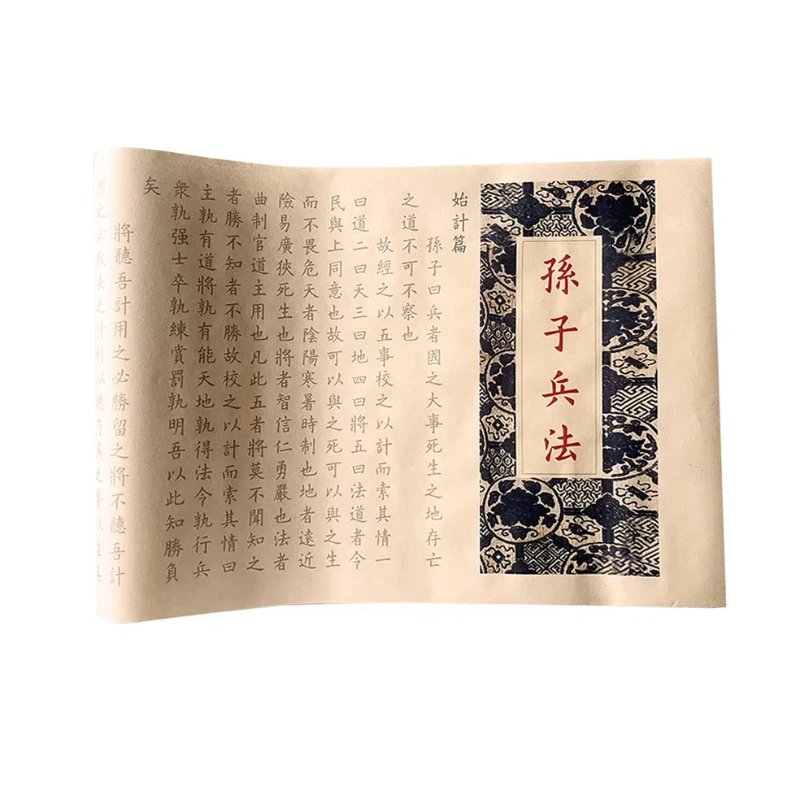 孫子兵法
始計篇
孫子曰兵者國之大事死生之地存亡
之道不可不察也
故經之以五事校之以計而索其情一
曰道二曰天三曰地四曰將五曰法道者令
民與上同意也故可以與之死可以與之生
而不畏危天者陰陽寒暑時制也地者遠近
險易廣狹死生也將者智信仁勇嚴也法者
曲制官道主用也凡此五者將莫不聞知之
者勝不知者不勝故校之以計而索其情曰
主孰有道將孰有能天地孰得法令孰行兵
衆孰强士卒孰練賞罰孰明吾以此知勝負
矣
將聽吾計用之必勝留之將不聽吾計